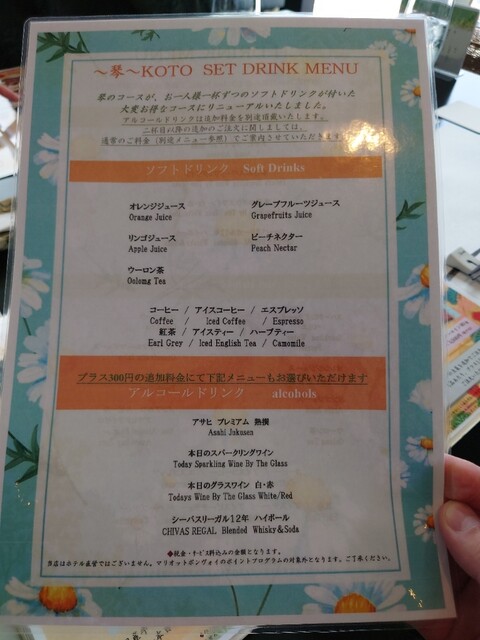 ～琴～KOTO SET DRINK MENU
琴のコースが、お一人様一杯ずつのソフトドリンクが付いた
大変お得なコースにリニューアルいたしました。
アルコールドリンクは追加料金を別途頂戴いたします。
二杯目以降の追加のご注文に関しましては、
通常のご料金（別途メニュー参照）でご案内させていただきます
ソフトドリンク Soft Drinks
オレンジジュース グレープフルーツジュース
Orange Juice Grapefruits Juice
リンゴジュース ピーチネクター
Apple Juice Peach Nectar
ウーロン茶
Oolomg Tea
コーヒー / アイスコーヒー / エスプレッソ
Coffee / Iced Coffee / Espresso
紅茶 / アイスティー / ハーブティー
Earl Grey / Iced English Tea / Camomile
プラス300円の追加料金にて下記メニューもお選びいただけます
アルコールドリンク alcohols
アサヒ プレミアム 熟撰
Asahi Jukusen
本日のスパークリングワイン
Today Sparkling Wine By The Glass
本日のグラスワイン 白・赤
Todays Wine By The Glass White/Red
シーバスリーガル12年 ハイボール
CHIVAS REGAL Blended Whisky&Soda
◆税金・サービス料込みの金額となります。
当店はホテル直営ではございません。マリオットボンヴォイのポイントプログラムの対象外となります。ご了承ください。